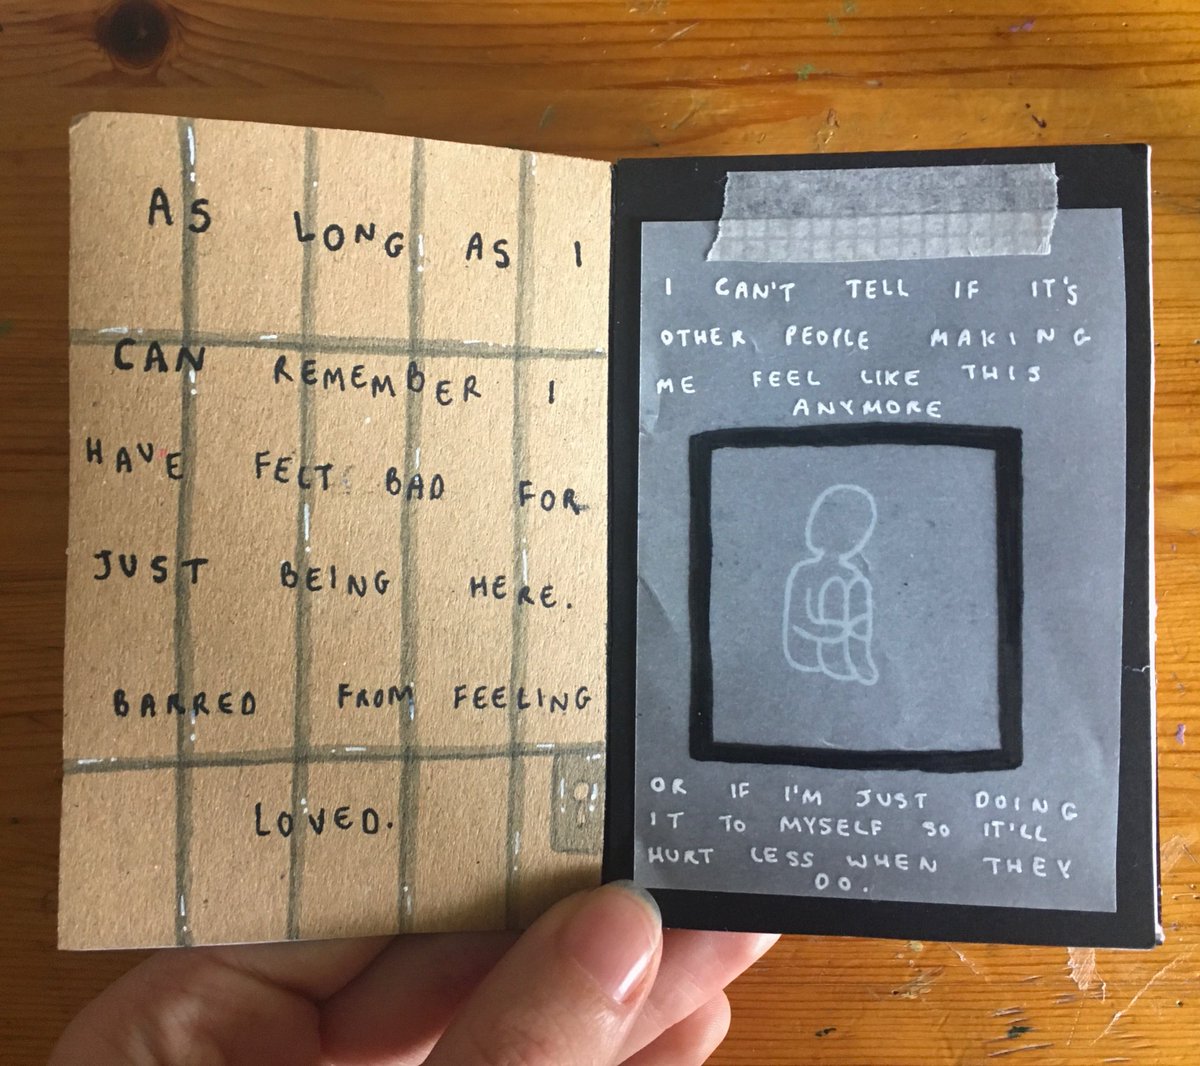 AS LONG AS I
CAN REMEMBER I
HAVE FELT BAD FOR
JUST BEING HERE.
BARRED FROM FEELING
LOVED.
I CAN'T TELL IF IT'S
OTHER PEOPLE MAKING
ME FEEL LIKE THIS
ANYMORE
OR IF I'M JUST DOING
IT TO MYSELF SO IT'LL
HURT LESS WHEN THEY
DO.